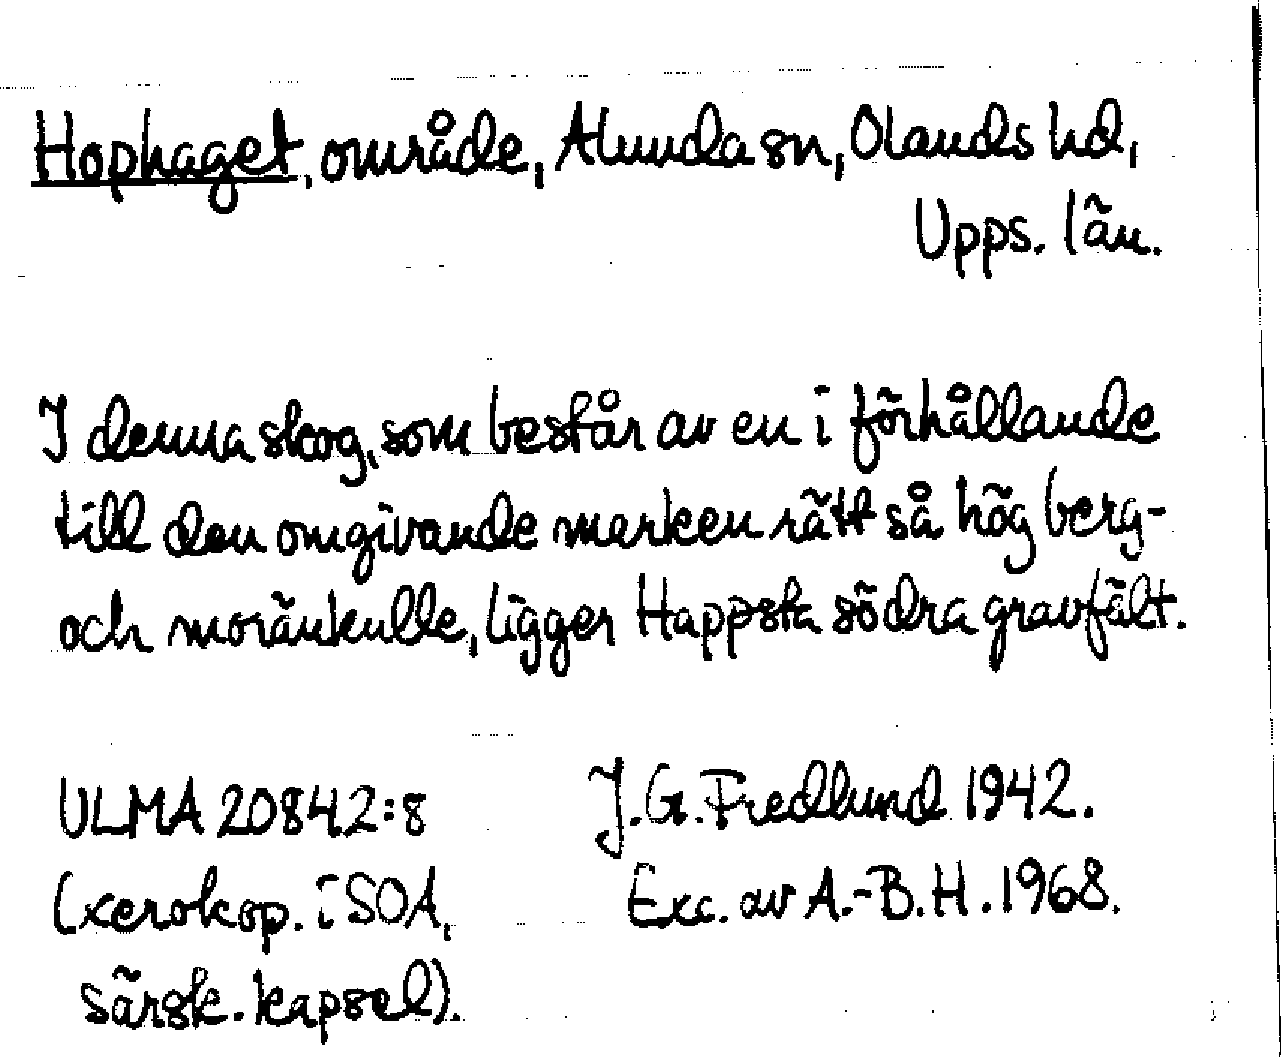 Hophaget, område, Alunda sn, Olands hd,
Upps. län.
I denna skog, som består av en i förhållande
till den omgivande marken rätt så hög berg-
och moränkulle, ligger Happsta södra gravfält.
ULMA 20842:8
J.G. Fredlund 1942.
(xerokop. i SOA,
Exc. av A.-B.H. 1968.
särsk. kapsel).